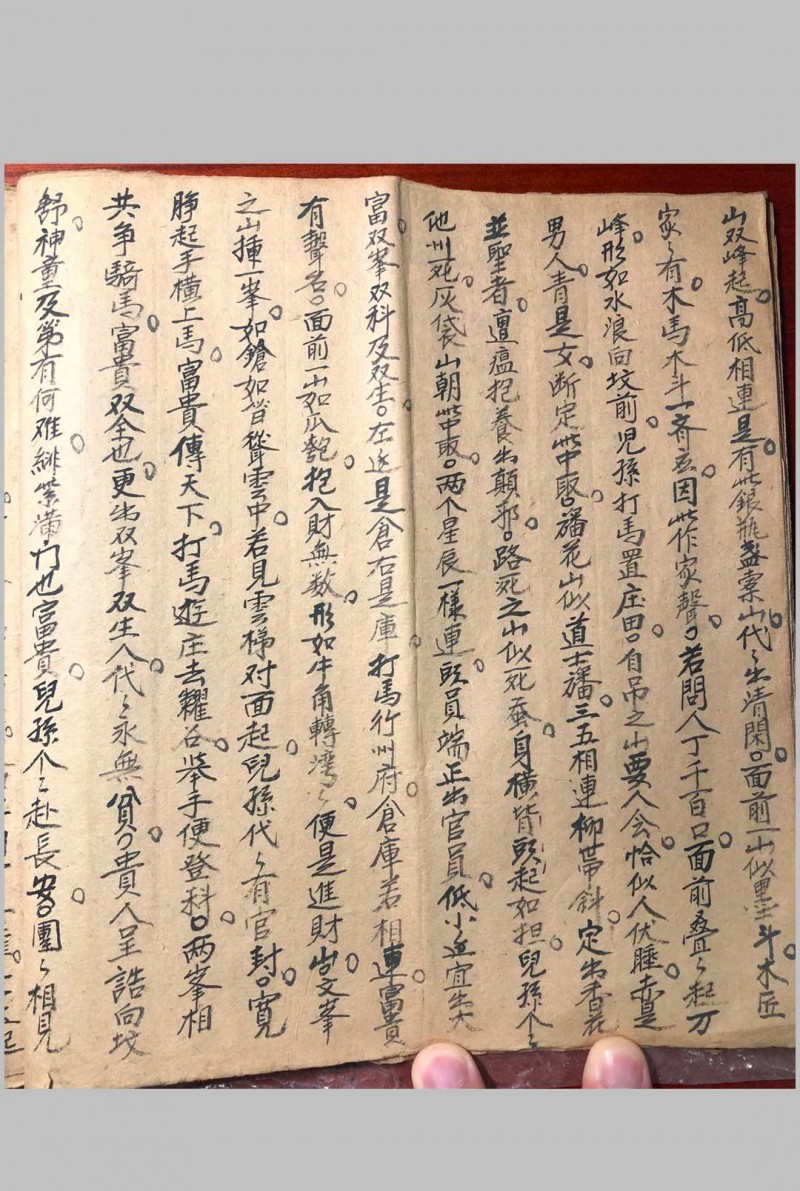 山双峰起。高低相連是。有此銀瓶盞棗山代〻出清閑。面前一山似墨斗。木匠
家〻有。木馬木斗一齊言。因此作家聲。若問人丁千百口。面前叠〻起万
峰。形如水浪向坟前。児孫打馬置庄田。自吊之山要人会。恰似人伏睡。赤是
男人青是女。断定此中取。旛花山似道士旛。三五相連柳帯斜。定出香花
並聖者。遭瘟抱養出顛邪。路死之山似死蚕。身横背頭起如担。兒孫个〻
他州死。灰袋山朝此中取。两个星辰一様連。頭員端正出官員。低小近宜出大
富。双峯双科及双生。左边是倉右是庫。打馬行州府。倉庫若相連。富貴
有聲名。面前一山如瓜匏。抱入財無数。形如牛角轉湾〻。便是進財山。文峯
之山挿一峯。如鎗如笋聳雲中。若見雲梯对面起。兒孫代〻有官封。寛
脖起手横上馬。富貴傳天下。打馬遊庄去糶谷。举手便登科。两峯相
共争騎馬。富貴双全也。更出双峯双生人。代〻永無貧。貴人呈誥向坟
舒。神童及第有何难。緋紫滿门也富貴。兒孫个〻赴長安。團〻相見